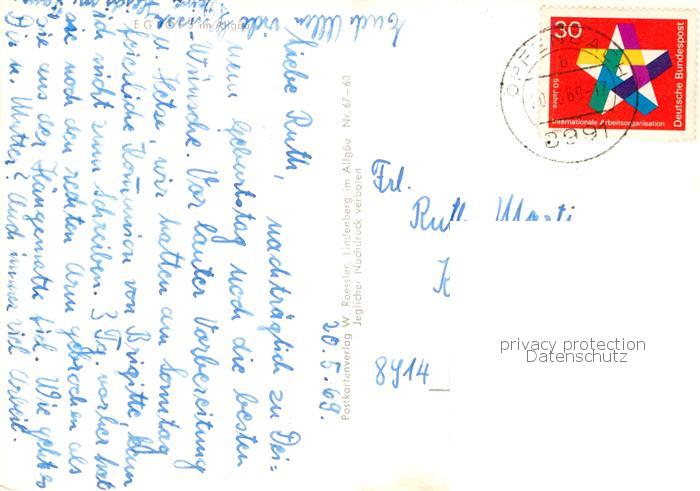 20.5.69.
Liebe Ruth, nachträglich zu Dei-
nem Geburtstag noch die besten
Wünsche. Vor lauter Vorbereitung
u. Hetse, wir hatten am Sonntag
feierliche Komunion von Brigitte, kam
ich nicht zum Schreiben. 3 Tg. vorher hat
sie noch den rechten Arm gebrochen als
sie aus der Hängematte fiel. Wie geht es
Dir u. Mutter? Auch immer viel Arbeit.
Euch Allen viele
EGLOFS im Allgäu
Postkartenverlag W. Roessler, Lindenberg im Allgäu Nr. 67-60
Jeglicher Nachdruck verboten
30
Deutsche Bundespost
50 Jahre
Internationale Arbeitsorganisation
8991
Frl.
Ruth
8914
privacy protection
Datenschutz